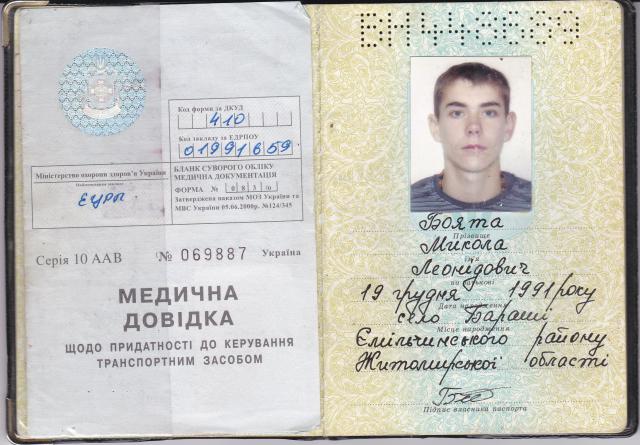 Код форми за ДКУД
410
Код закладу за ЄДРПОУ
01991659
Міністерство охорони здоров'я України
Найменування закладу
БЛАНК СУВОРОГО ОБЛІКУ
МЕДИЧНА ДОКУМЕНТАЦІЯ
ФОРМА №
Затверджена наказом МОЗ України та
МВС України 05.06.2000р. №124/345
Серія 10 ААВ № 069887 Україна
МЕДИЧНА
ДОВІДКА
ЩОДО ПРИДАТНОСТІ ДО КЕРУВАННЯ
ТРАНСПОРТНИМ ЗАСОБОМ
Боята
Прізвище
Микола
ім'я
Леонідович
по батькові
19 грудня 1991 року
Дата народження
село Бараші
Місце народження
Ємільчинського району
Житомирської області
Підпис власника паспорта